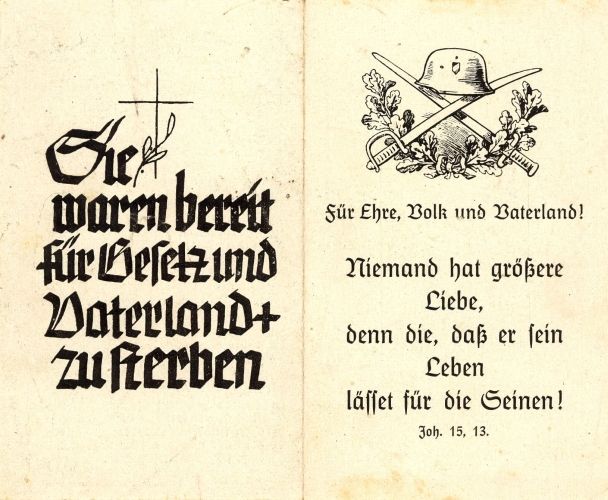 Sie
waren bereit
für Gesetz und
Vaterland +
zu sterben
Für Ehre, Volk und Vaterland!
Niemand hat größere
Liebe,
denn die, daß er sein
Leben
lässet für die Seinen!
Joh. 15, 13.